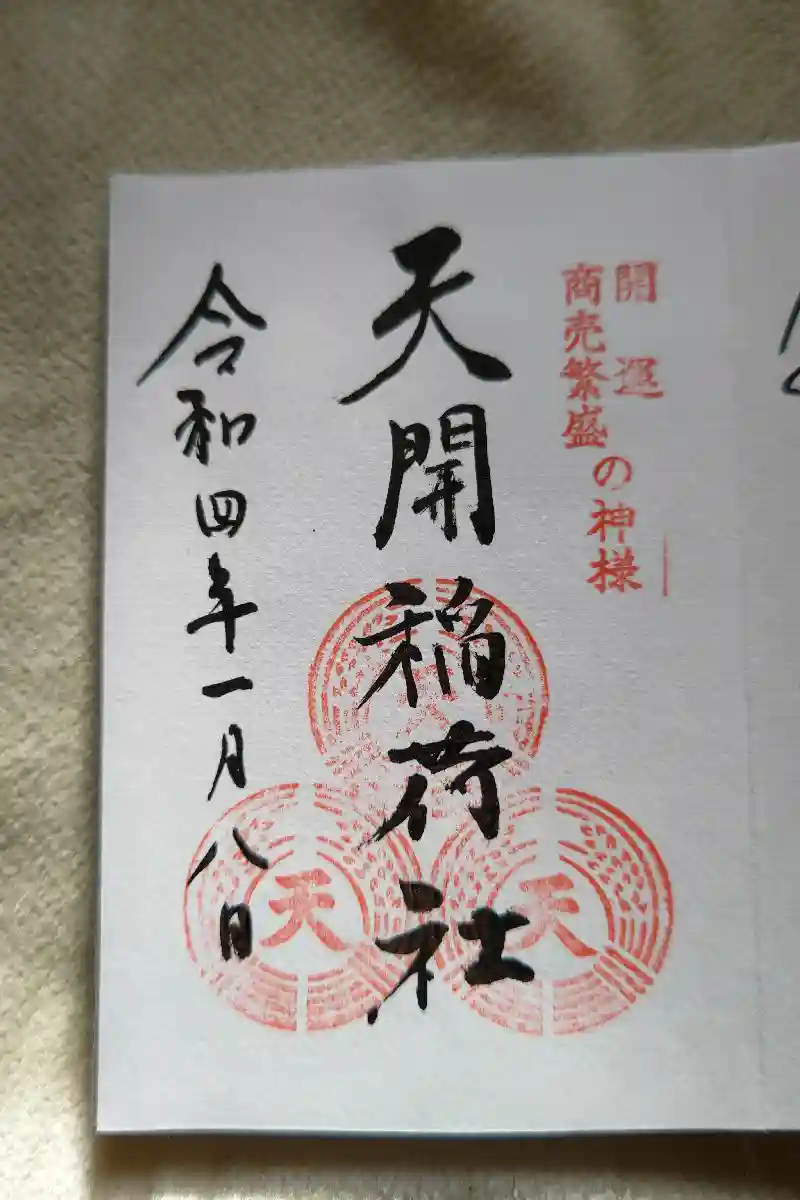 開運
商売繁盛
の神様
天開稲荷社
天
天
令和四年一月八日